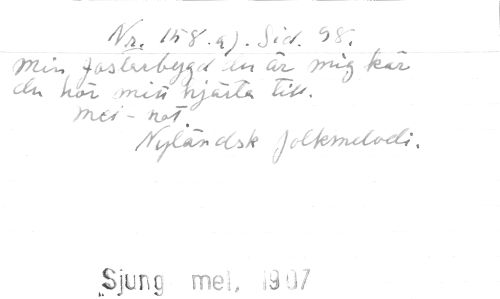 Nr. 158.a). Sid. 98.
Min fosterbygd du är mig kär
du hör mitt hjärta till.
mel-not.
Nyländsk folkmelodi.
„Sjung mel, 1907